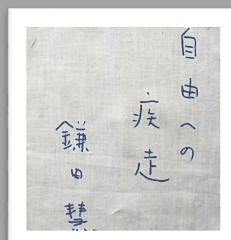 自由への
疾走
鎌田慧